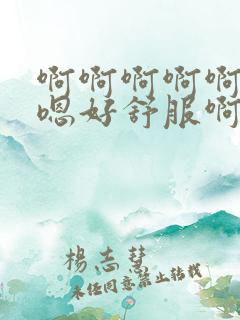 啊啊啊啊啊
嗯好舒服啊
杨志慧
未经同意禁止转载